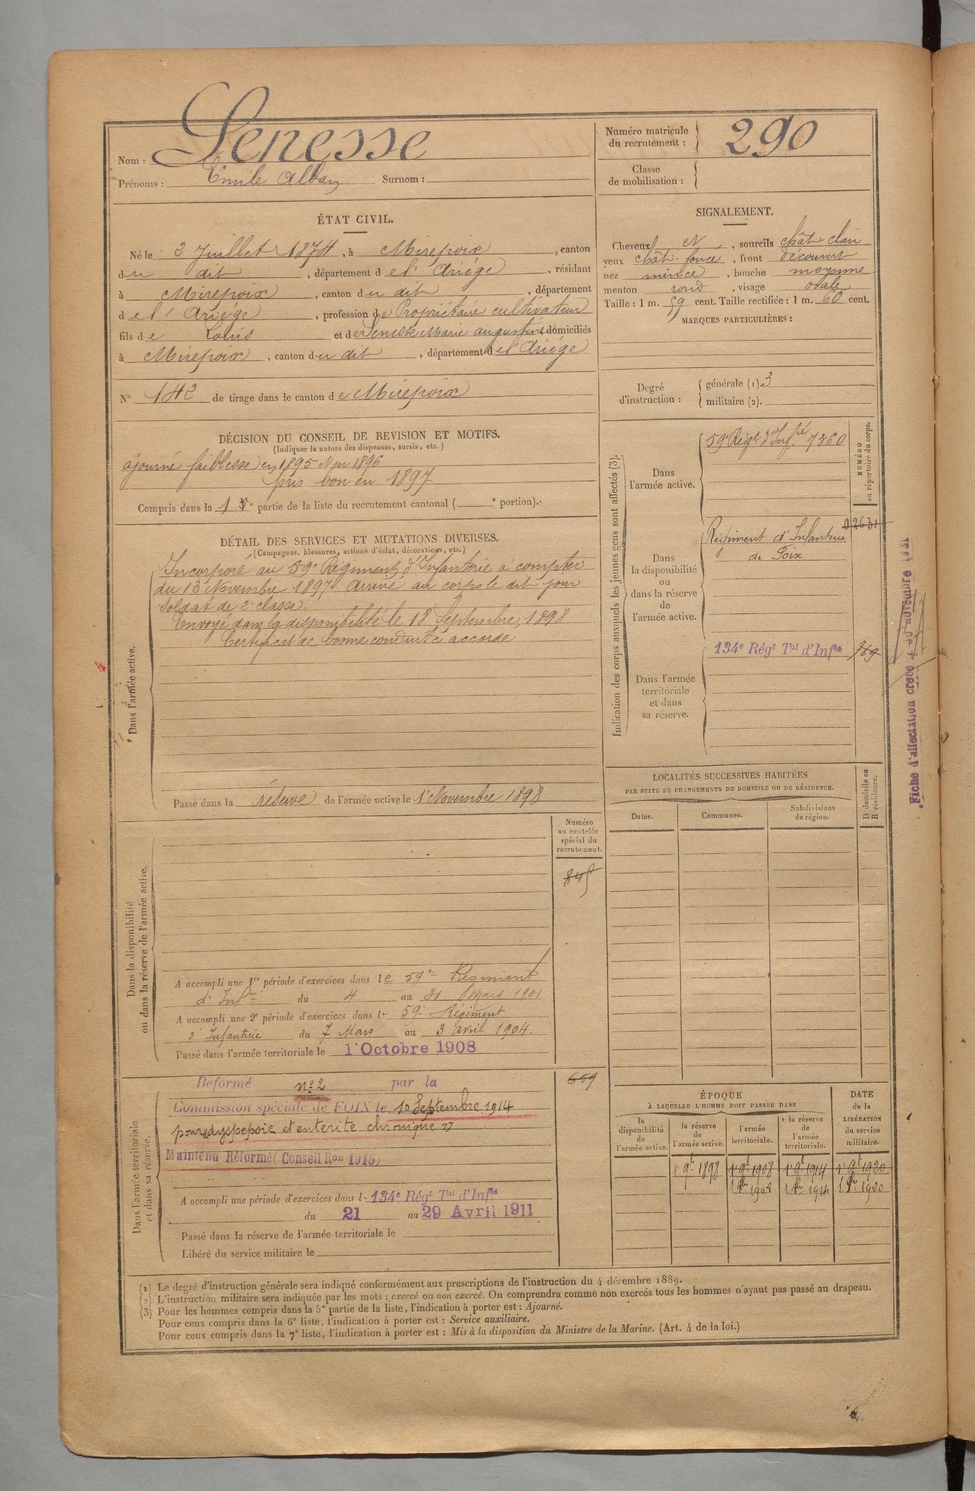 Nom : Senesse
Prénoms : Emile Alban Surnom :
Numéro matricule du recrutement : 290
Classe de mobilisation :
ÉTAT CIVIL.
Né le 2 Juillet 1874, à Mirepoix, canton
du dit, département de l'Ariège, résidant
à Mirepoix, canton du dit, département
de l'Ariége, profession de Propriétaire cultivateur
fils de Louis et de Senesse Marie augustine, domiciliés
à Mirepoix, canton du dit, département de l'Ariége
N° 142 de tirage dans le canton de Mirepoix
DÉCISION DU CONSEIL DE REVISION ET MOTIFS.
(Indiquer la nature des dispenses, sursis, etc.)
ajourné faiblesse en 1895 et en 1896
pris bon en 1897
Compris dans la 1e partie de la liste du recrutement cantonal ( e portion).
DÉTAIL DES SERVICES ET MUTATIONS DIVERSES.
(Campagnes, blessures, actions d'éclat, décorations, etc.)
Dans l'armée active.
Incorporé au 59e Régiment d'Infanterie à compter
du 13 Novembre 1897. Arrivé au corps le dit jour
soldat de 2e classe.
Envoyé dans la disponibilité le 18 Septembre 1898
Certificat de bonne conduite accordé
Passé dans la réserve de l'armée active le 1er Novembre 1898
Dans la disponibilité ou dans la réserve de l'armée active.
Numéro au contrôle spécial du recrutement.
845
A accompli une 1re période d'exercices dans le 59e Régiment
d'Infie du 4 au 31 Mars 1901
A accompli une 2e période d'exercices dans le 59e Régiment
d'Infanterie du 7 Mars au 3 avril 1904.
Passé dans l'armée territoriale le 1er Octobre 1908
Dans l'armée territoriale et dans sa réserve.
659
Réformé n°2 par la
Commission spéciale de FOIX le 10 Septembre 1914
pour dyspepsie et entérite chronique
Maintenu Réformé (Conseil Ron 1915)
A accompli une période d'exercices dans l 134e Régt Tal d'Infie
du 21 au 29 Avril 1911
Passé dans la réserve de l'armée territoriale le
Libéré du service militaire le
SIGNALEMENT.
Cheveux N, sourcils chât-clair
yeux chât-foncé, front découvert
nez mince, bouche moyenne
menton rond, visage ovale
Taille : 1 m. 59 cent. Taille rectifiée : 1 m. 60 cent.
MARQUES PARTICULIÈRES :
Degré d'instruction : générale (1) 3
militaire (2).
Indication des corps auxquels les jeunes gens sont affectés (3).
NUMÉRO au répertoire du corps.
Dans l'armée active.
59e Régt d'Infie 7360
Dans la disponibilité ou dans la réserve de l'armée active.
Régiment d'Infanterie
de Foix
Dans l'armée territoriale et dans sa réserve.
134e Régt Tal d'Infie
Fiche d'affectation créée
LOCALITÉS SUCCESSIVES HABITÉES
PAR SUITE DE CHANGEMENTS DE DOMICILE OU DE RÉSIDENCE.
Dates. Communes. Subdivisions de région. D domicile ou R résidence.
ÉPOQUE
À LAQUELLE L'HOMME DOIT PASSER DANS
DATE de la LIBÉRATION du service militaire.
la disponibilité de l'armée active. la réserve de l'armée active. l'armée territoriale. la réserve de l'armée territoriale.
1er 9bre 1898 1er 9bre 1908 1er 9bre 1914 1er 9bre 1920
1 8bre 1908 1 8bre 1914 1 8bre 1920
(1) Le degré d'instruction générale sera indiqué conformément aux prescriptions de l'instruction du 4 décembre 1889.
(2) L'instruction militaire sera indiquée par les mots : exercé ou non exercé. On comprendra comme non exercés tous les hommes n'ayant pas passé au drapeau.
(3) Pour les hommes compris dans la 5e partie de la liste, l'indication à porter est : Ajourné.
Pour ceux compris dans la 6e liste, l'indication à porter est : Service auxiliaire.
Pour ceux compris dans la 7e liste, l'indication à porter est : Mis à la disposition du Ministre de la Marine. (Art. 4 de la loi.)